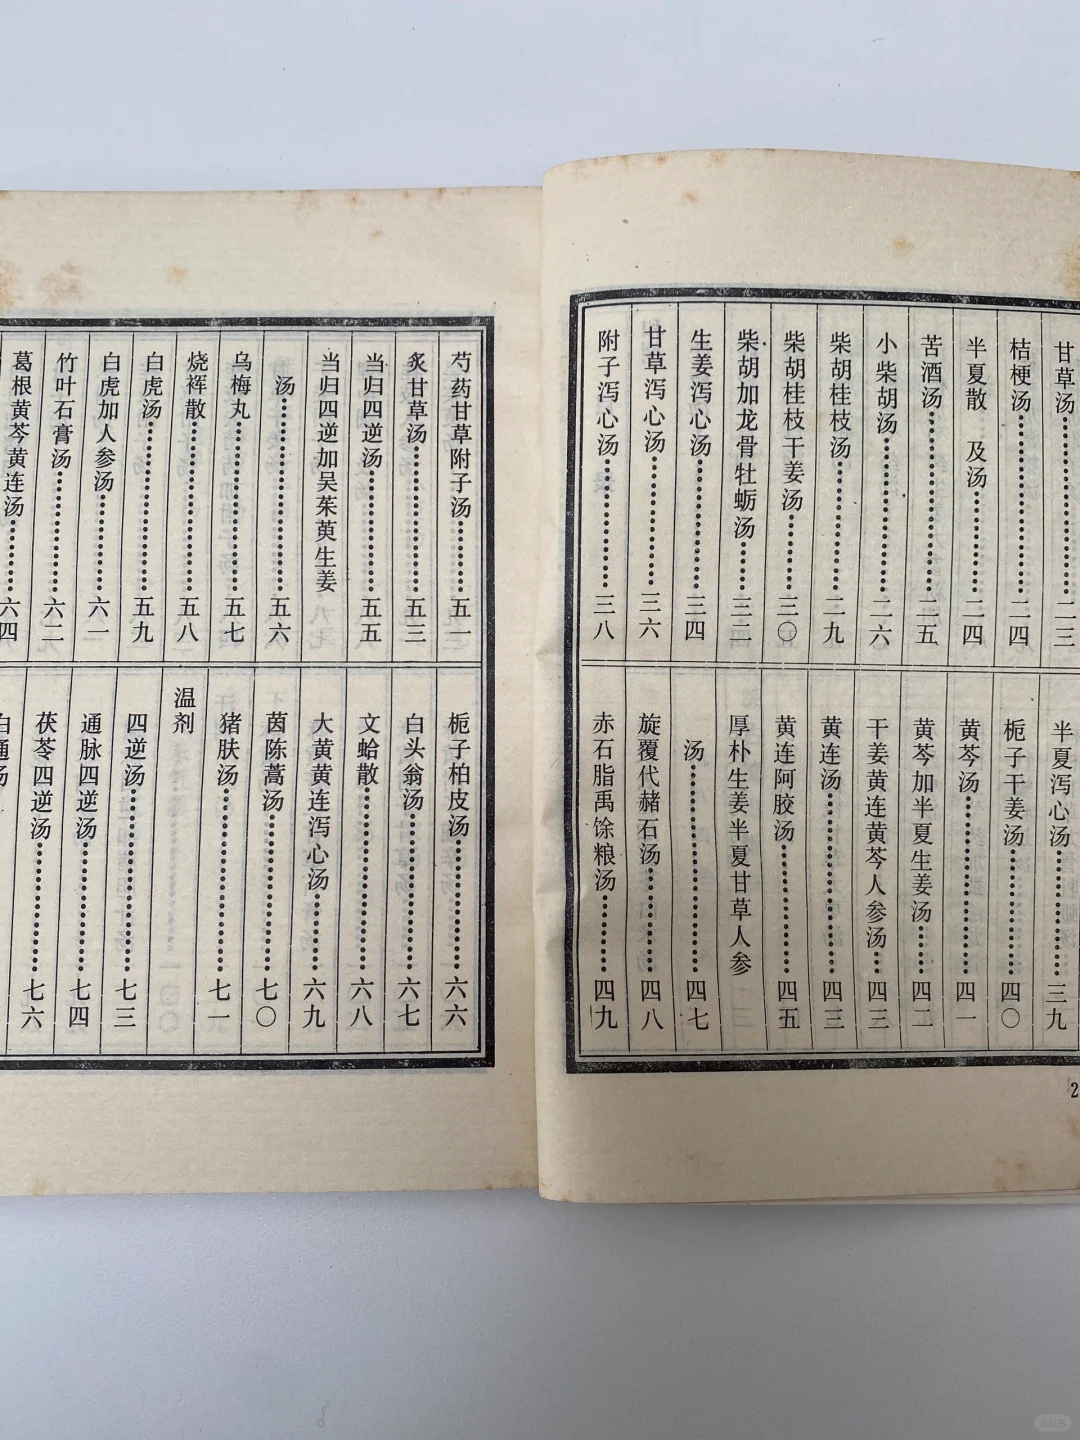 甘草汤 二三
桔梗汤 二四
半夏散 及汤 二四
苦酒汤 二五
小柴胡汤 二六
柴胡桂枝汤 二九
柴胡桂枝干姜汤 三〇
柴胡加龙骨牡蛎汤 三二
生姜泻心汤 三四
甘草泻心汤 三六
附子泻心汤 三八
半夏泻心汤 三九
栀子干姜汤 四〇
黄芩汤 四一
黄芩加半夏生姜汤 四二
干姜黄连黄芩人参汤 四三
黄连汤 四三
黄连阿胶汤 四五
厚朴生姜半夏甘草人参
汤 四七
旋覆代赭石汤 四八
赤石脂禹馀粮汤 四九
2
芍药甘草附子汤 五一
炙甘草汤 五三
当归四逆汤 五五
当归四逆加吴茱萸生姜
汤 五六
乌梅丸 五七
烧裈散 五八
白虎汤 五九
白虎加人参汤 六一
竹叶石膏汤 六二
葛根黄芩黄连汤 六四
栀子柏皮汤 六六
白头翁汤 六七
文蛤散 六八
大黄黄连泻心汤 六九
茵陈蒿汤 七〇
猪肤汤 七一
温剂
四逆汤 七三
通脉四逆汤 七四
茯苓四逆汤 七六
白通汤
小红书